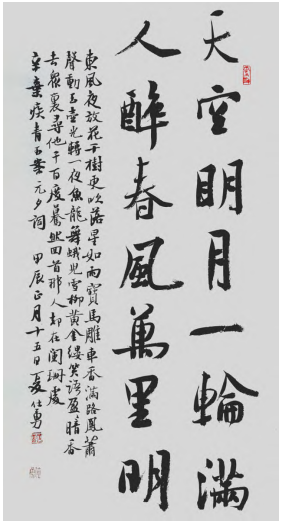 天空明月一輪滿
人醉春風萬里明
東風夜放花千樹更吹落星如雨寶馬雕車香滿路鳳蕭
聲動玉壺光轉一夜魚龍舞蛾兒雪柳黃金縷笑語盈暗香
去眾裏尋他千百度驀然回首那人却在闌珊處
辛棄疾青玉案元夕詞 甲辰正月十五日夏仕勇